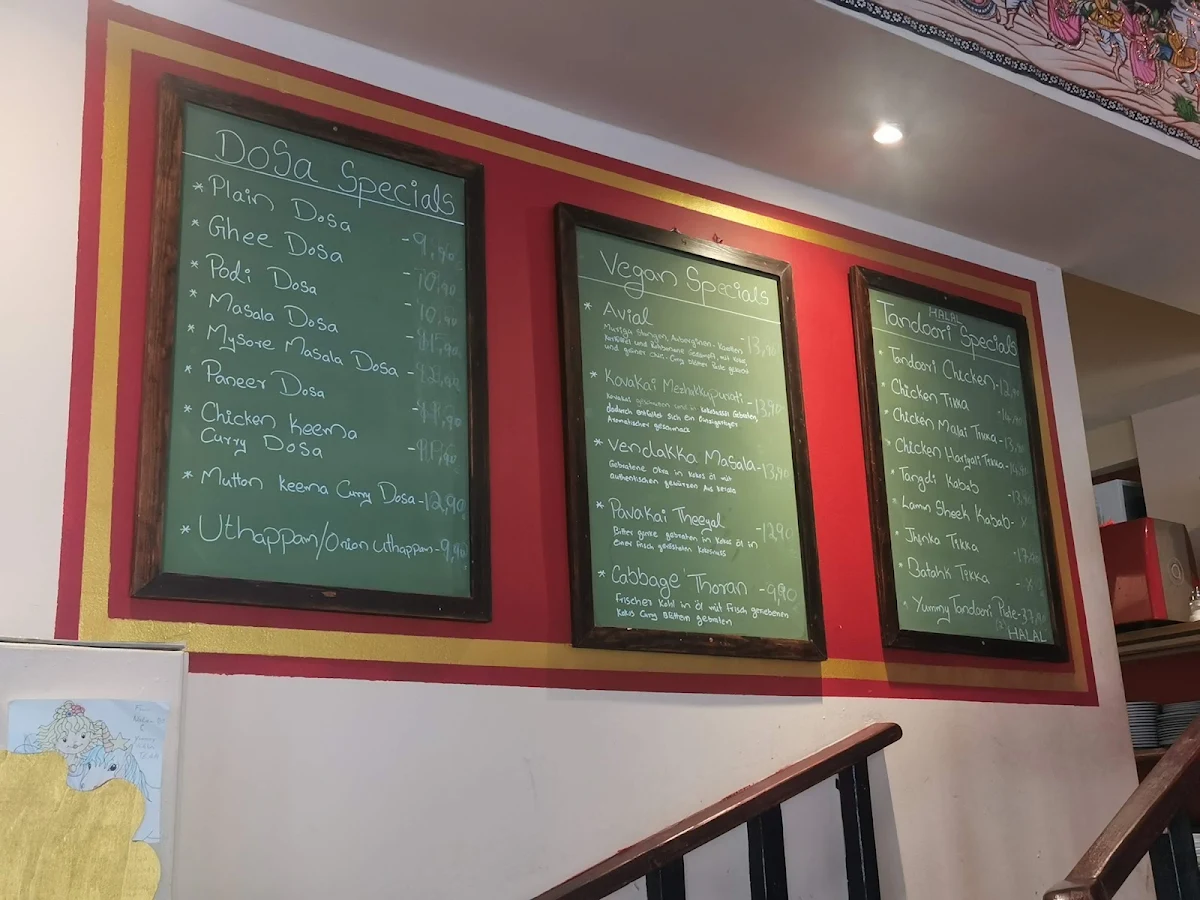 Dosa Specials
* Plain Dosa
* Ghee Dosa - 10,90
* Podi Dosa - 10,90
* Masala Dosa
* Mysore Masala Dosa -
* Paneer Dosa
* Chicken Keema
Curry Dosa
* Mutton keema Curry Dosa - 12,90
* Uthappam/Onion uthappam - 9,90
Vegan Specials
* Avial - 13,90
und grüner
* Kovakai Mezhukkupurati - 13,90
dadurch entfaltet sich ein einzigartiger
Aromatischer geschmack
* Vendakka Masala - 13,90
Gebratene okra in kokos öl mit
authentischen gewürzen Aus kerala
* Pavakai Theeyal - 12,90
Bitter gurke gebraten in Kokos öl in
einer frisch gerösteten kokosnuss
* Cabbage Thoran - 9,90
Frischer Kohl in öl mit Frisch geriebenen
Kokos Curry Blättern gebraten
HALAL
Tandoori Specials
* Tandoori Chicken - 12,90
* Chicken Tikka
* Chicken Malai Tikka - 13,90
* Chicken Hariyali Tikka - 14,90
* Tangdi Kabab
* Lamn Sheek Kabab -
* Jhinka Tikka
* Batahk Tikka
* Yummy Tandoori Plate - 37,90
HALAL